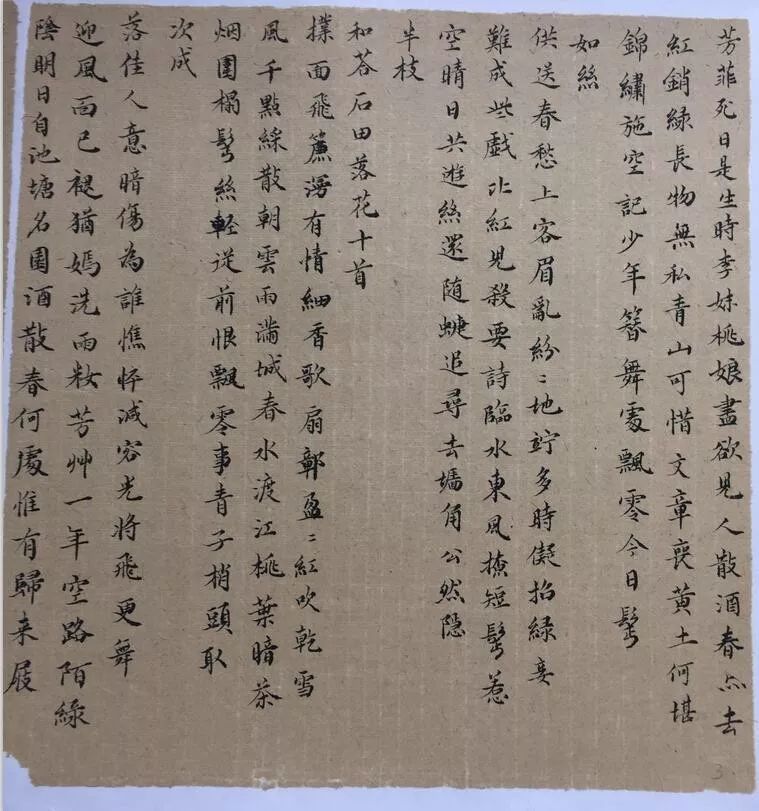 芳菲死日是生時李妹桃娘盡欲兒人散酒春亦去
紅銷綠長物無私青山可惜文章喪黃土何堪
錦繡施空記少年簪舞處飄零今日鬢
如絲
供送春愁上客眉亂紛〻地竚多時儗招綠妾
難成些戲比紅兒殺要詩臨水東風撩短鬢惹
空晴日共遊絲還随蜨追尋去墻角公然隐
半枝
和荅石田落花十首
撲面飛簾漫有情細香歌扇鄣盈〻紅吹乾雪
風千點綵散朝雲雨滿城春水渡江桃葉暗茶
烟圍榻鬢絲輕從前恨飄零事青子梢頭取
次成
落佳人意暗傷為誰憔悴減容光將飛更舞
迎風面已褪猶嫣洗雨粧芳艸一年空路陌綠
陰明日自池塘名園酒散春何處惟有歸来屐
3